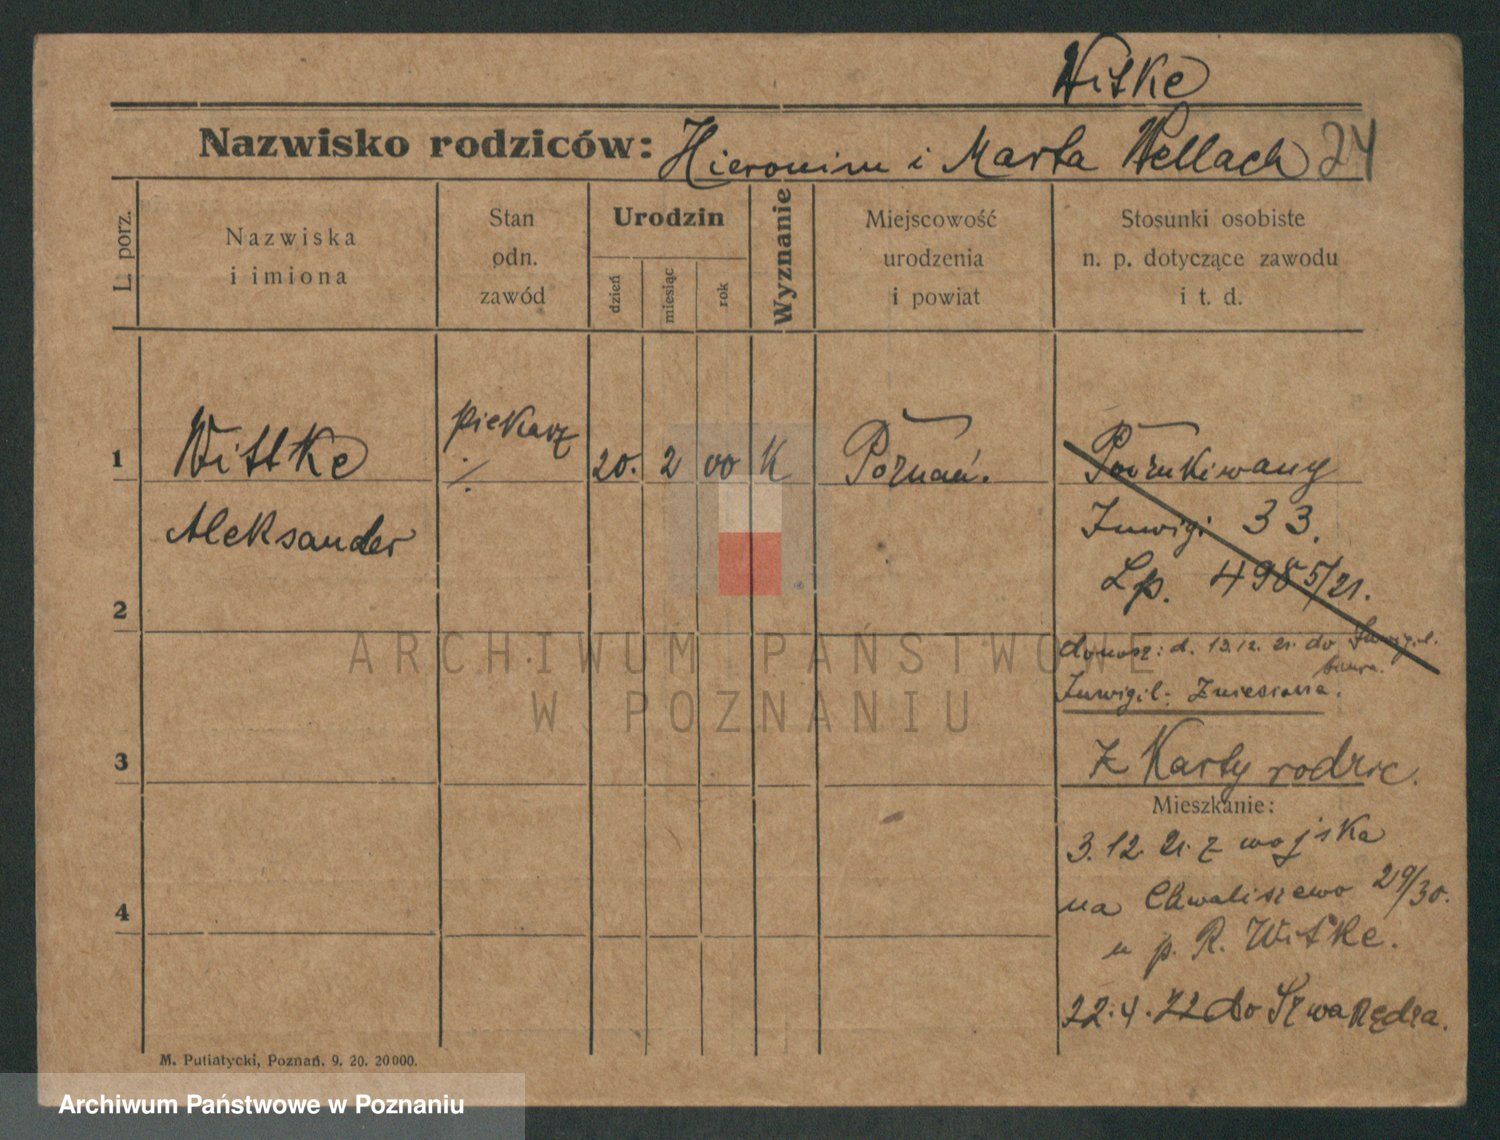 Witke
Nazwisko rodziców: Hieronim i Marta Wellach 24
L. porz.
Nazwiska
i imiona
Stan
odn.
zawód
Urodzin
dzień
miesiąc
rok
Wyznanie
Miejscowość
urodzenia
i powiat
Stosunki osobiste
n. p. dotyczące zawodu
i t. d.
1 Wittke piekarz 20. 2 00 K Poznań. Poszukiwany
Aleksander
Inwigi 33.
Lp. 4985/21.
2
donosz: d. 13.12. 21. do Inwigil.
biura.
Inwigil: Zniesiona.
3
Z Karty rodzic.
Mieszkanie:
3.12. 21. z wojska
4
na Chwaliszewo 29/30.
u p. R. Witke.
22.4.22 do Szwarzędza.
M. Putiatycki, Poznań. 9. 20. 20 000.
ARCHIWUM PAŃSTWOWE
W POZNANIU
Archiwum Państwowe w Poznaniu